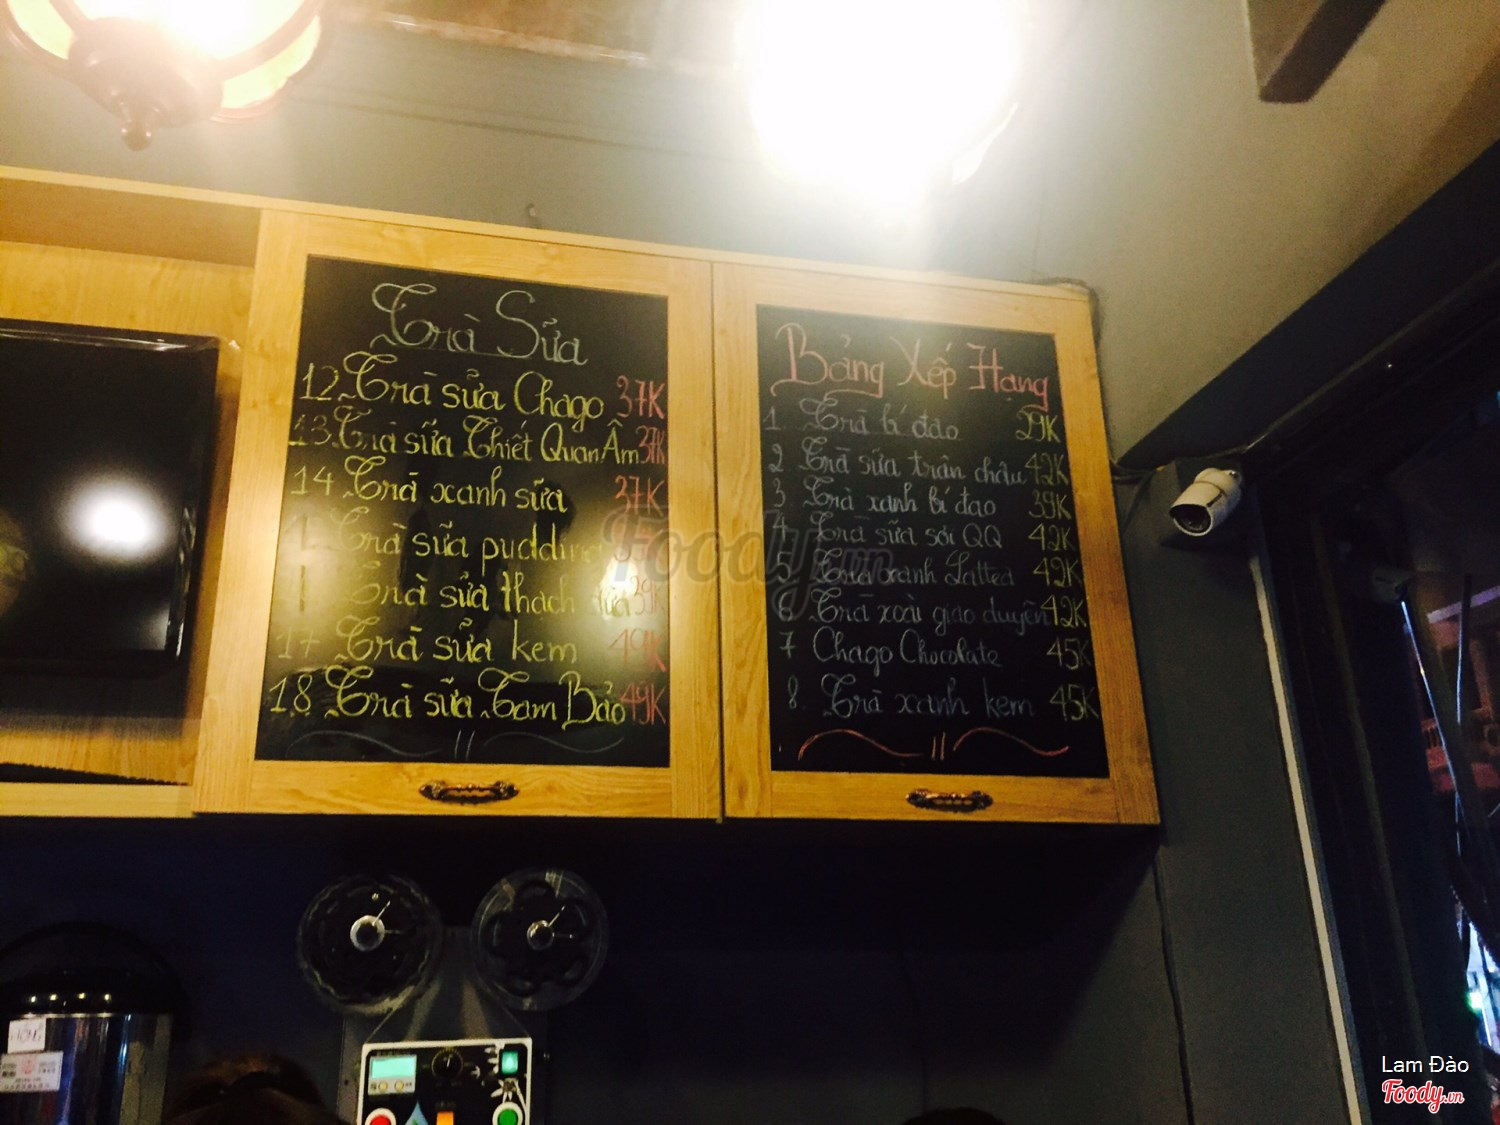 Trà Sữa
12. Trà sữa Chago 37K
13. Trà sữa Thiết Quan Âm 37K
14. Trà xanh sữa 37K
Trà sữa pudding
Trà sữa thạch dừa 39K
17 Trà sữa kem 49K
18. Trà sữa Tam Bảo 49K
Bảng Xếp Hạng
1 Trà bí đao 29K
2 Trà sữa trân châu 42K
3 Trà xanh bí đao 39K
4 Trà sữa sợi QQ 42K
5 Trà xanh Lattea 42K
6 Trà xoài giao duyên 42K
7 Chago Chocolate 45K
8. Trà xanh kem 45K
Foody.vn
HỒNG
Lam Đào
Foody.vn